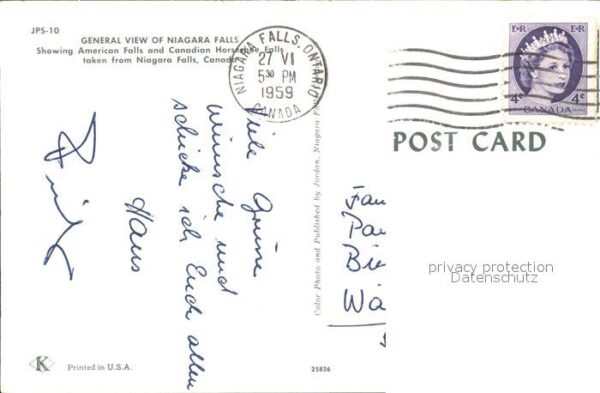 JPS-10
GENERAL VIEW OF NIAGARA FALLS
Showing American Falls and Canadian Horseshoe Falls
taken from Niagara Falls, Canada
NIAGARA FALLS, ONTARIO
27 VI
530 PM
1959
CANADA
E II R
E II R
4¢
4¢
CANADA
POST CARD
Viele Grüsse
wünsche und
schicke ich Euch allen
Hans
Color Photo and Published by Jordan, Niagara Fal
Fam
Pau
Bi
Wa
privacy protection
Datenschutz
K
Printed in U.S.A.
25826